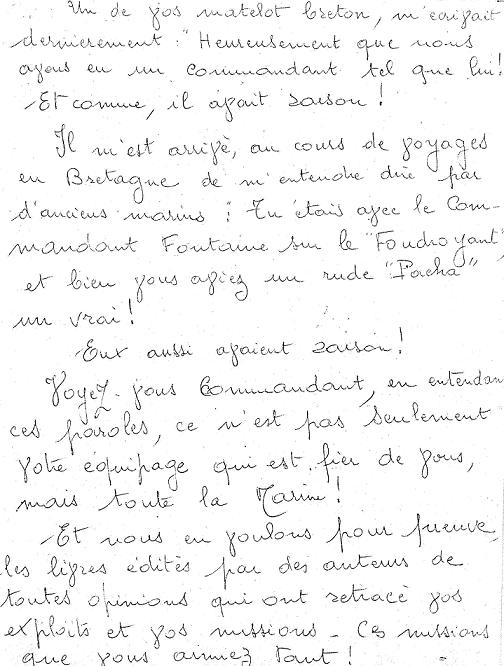 Un de vos matelot breton, m'écrivait
dernièrement : "Heureusement que nous
avons eu un commandant tel que lui!
Et comme, il avait raison !
Il m'est arrivé, au cours de voyages
en Bretagne de m'entendre dire par
d'anciens marins : Tu étais avec le Com-
mandant Fontaine sur le "Foudroyant"
et bien vous aviez un rude "Pacha"
un vrai !
Eux aussi avaient raison !
Voyez-vous Commandant, en entendan
ces paroles, ce n'est pas seulement
votre équipage qui est fier de vous,
mais toute la Marine !
Et nous en voulons pour preuve,
les livres édités par des auteurs de
toutes opinions qui ont retracé vos
exploits et vos missions - Ces missions
que vous aimiez tant !